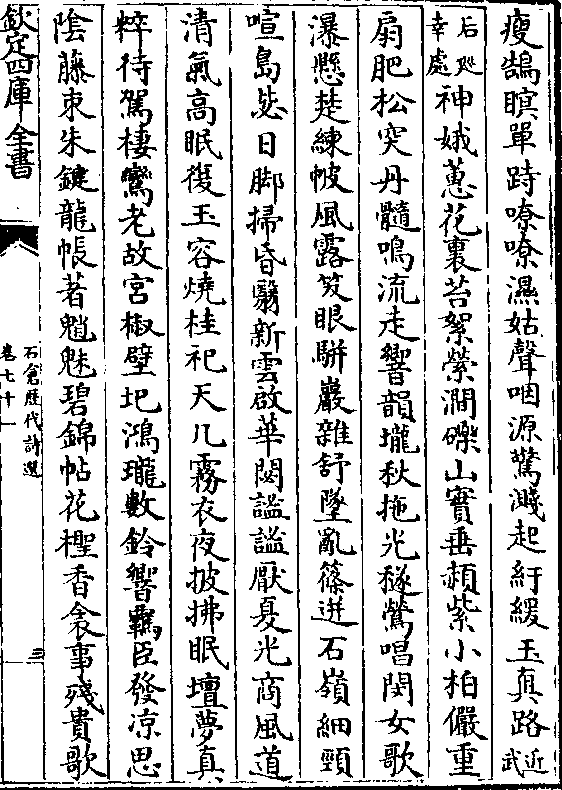 瘦鵠瞑單跱嘹嘹濕姑聲咽源驚濺起紆緩玉真路近武
后廵幸處神娥蕙花裏苔絮縈澗礫山實垂赬紫小柏儼重
扇肥松突丹髓鳴流走響韻壠秋拖光穟鶯唱閔女歌
瀑懸楚練帔風露笑眼駢巖雜舒墜亂篠迸石嶺細頸
喧島毖日脚掃昏翳新雲啟華閟謐謐厭夏光商風道
清氣高眠復玉容燒桂祀天几霧衣夜披拂眠壇夢真
粹待駕棲鸞老故宮椒壁圮鴻瓏數鈴響羈臣發凉思
陰藤束朱鍵龍帳著魈魅碧錦帖花檉香衾事殘貴歌
欽定四庫全書
石倉歴代詩選
卷七十一
三